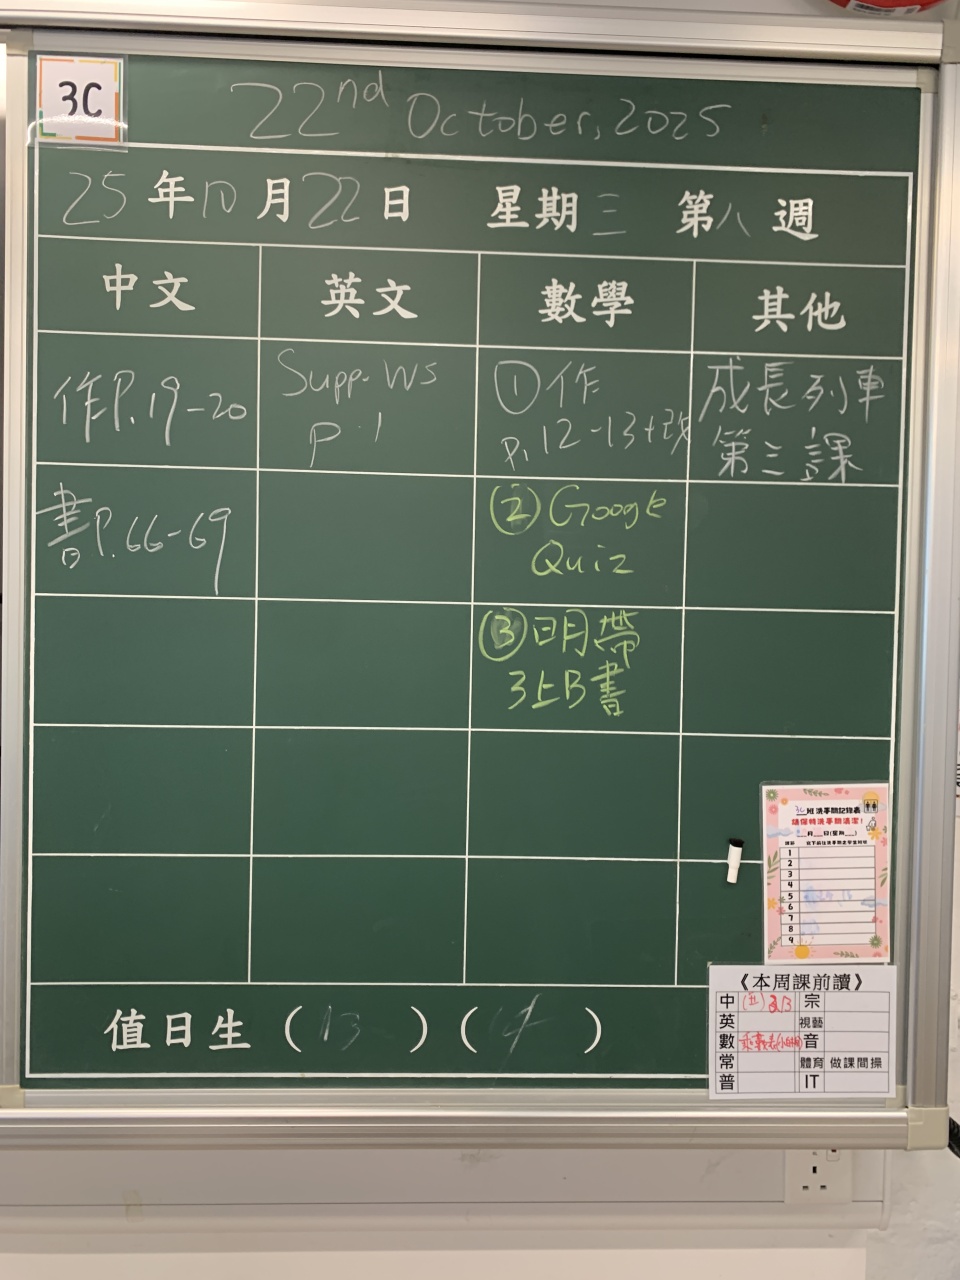 3C
22nd October, 2025
25年10月22日 星期三 第八週
中文 英文 數學 其他
作P.19-20
Supp. WS
P.1
①作
P.12-13+改
成長列車
第三課
書P.66-69
② Google
Quiz
③ 日月帶
3上B書
3C班洗手間記錄表
請保持洗手間清潔！
月 日(星期 )
1
2
3
4
5
6
7
8
9
《本周課前讀》
中 宗
英 視藝
數 音
常 體育 做課間操
普 IT
值日生 ( 13 ) ( )